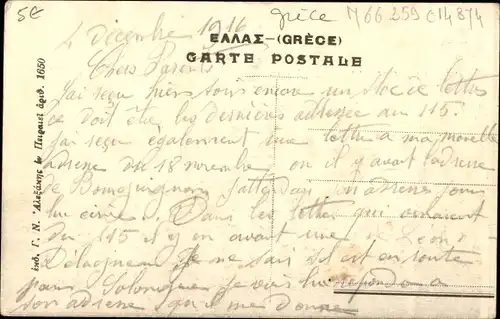 5€
grèce M66 259 c14874
4 décembre 1916
ΕΛΛΑΣ-(GRÈCE)
CARTE POSTALE
Chers Parents
J'ai reçu hier soir encore un bloc de lettres
ce doit être les dernières adressée au 115.
J'ai reçu également une lettre a ma nouvelle
adresse du 18 novembre ou il y avait l'adresse
de Bourguignon j'attendais son adresse pour
lui écrire. Dans les lettres qui venaient
du 115 il y en avait une de Léon
Délagneau je ne sais s'il est en route
pour Salonique je vais lui répondre a
son adresse qu'il me donne
ἐκδ. Γ. Ν. Ἀλεξάκης ἐν Πειραιεῖ ἀριθ. 1650